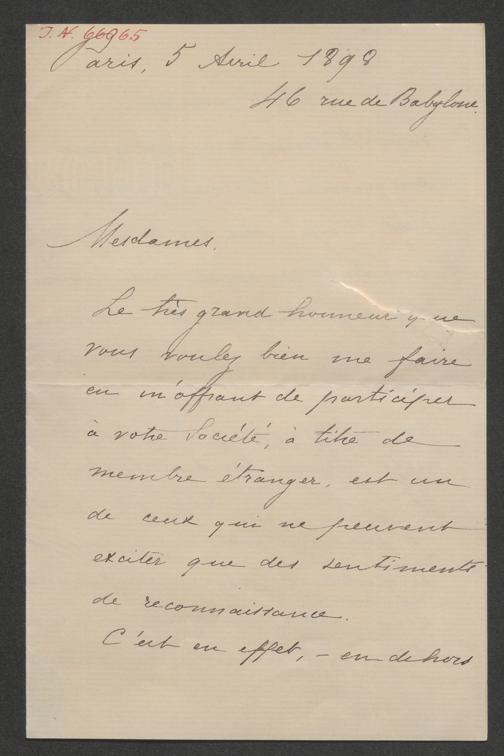 J. N. 66965
Paris, 5 Avril 1898
46 rue de Babylone.
Mesdames.
Le très grand honneur que
vous voulez bien me faire
en m'offrant de participer
à votre Société, à titre de
membre étranger, est un
de ceux qui ne peuvent
exciter que des sentiments
de reconnaissance.
C'est en effet, – en dehors